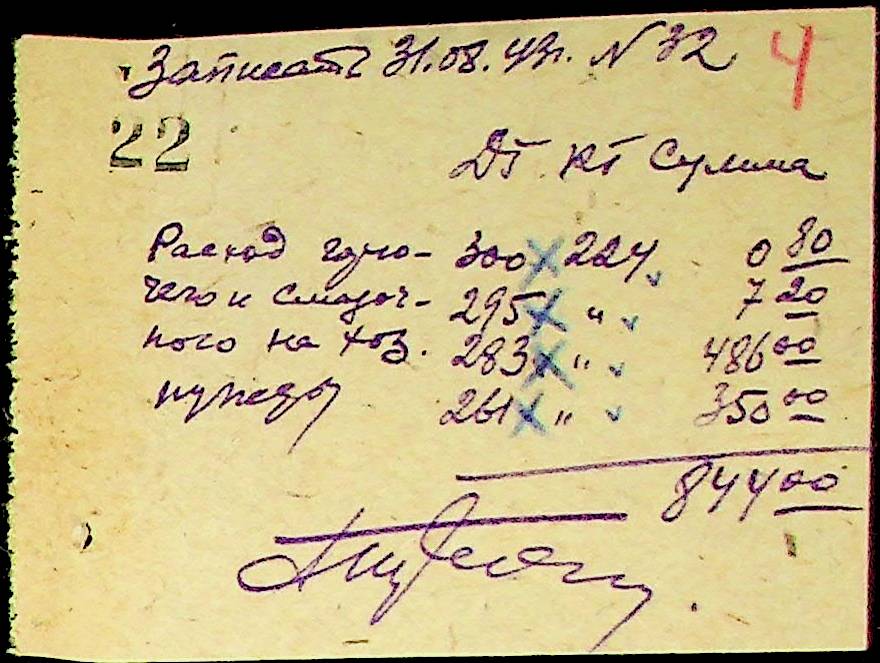 Записать 31.08.43г. N 32 4
22
Дт Кт Сумма
Расход горю- 300 224 0 80
чего и смазоч- 295 " 7 20
ного на хоз. 283 " 486 00
нужды 261 " 350 00
844 00